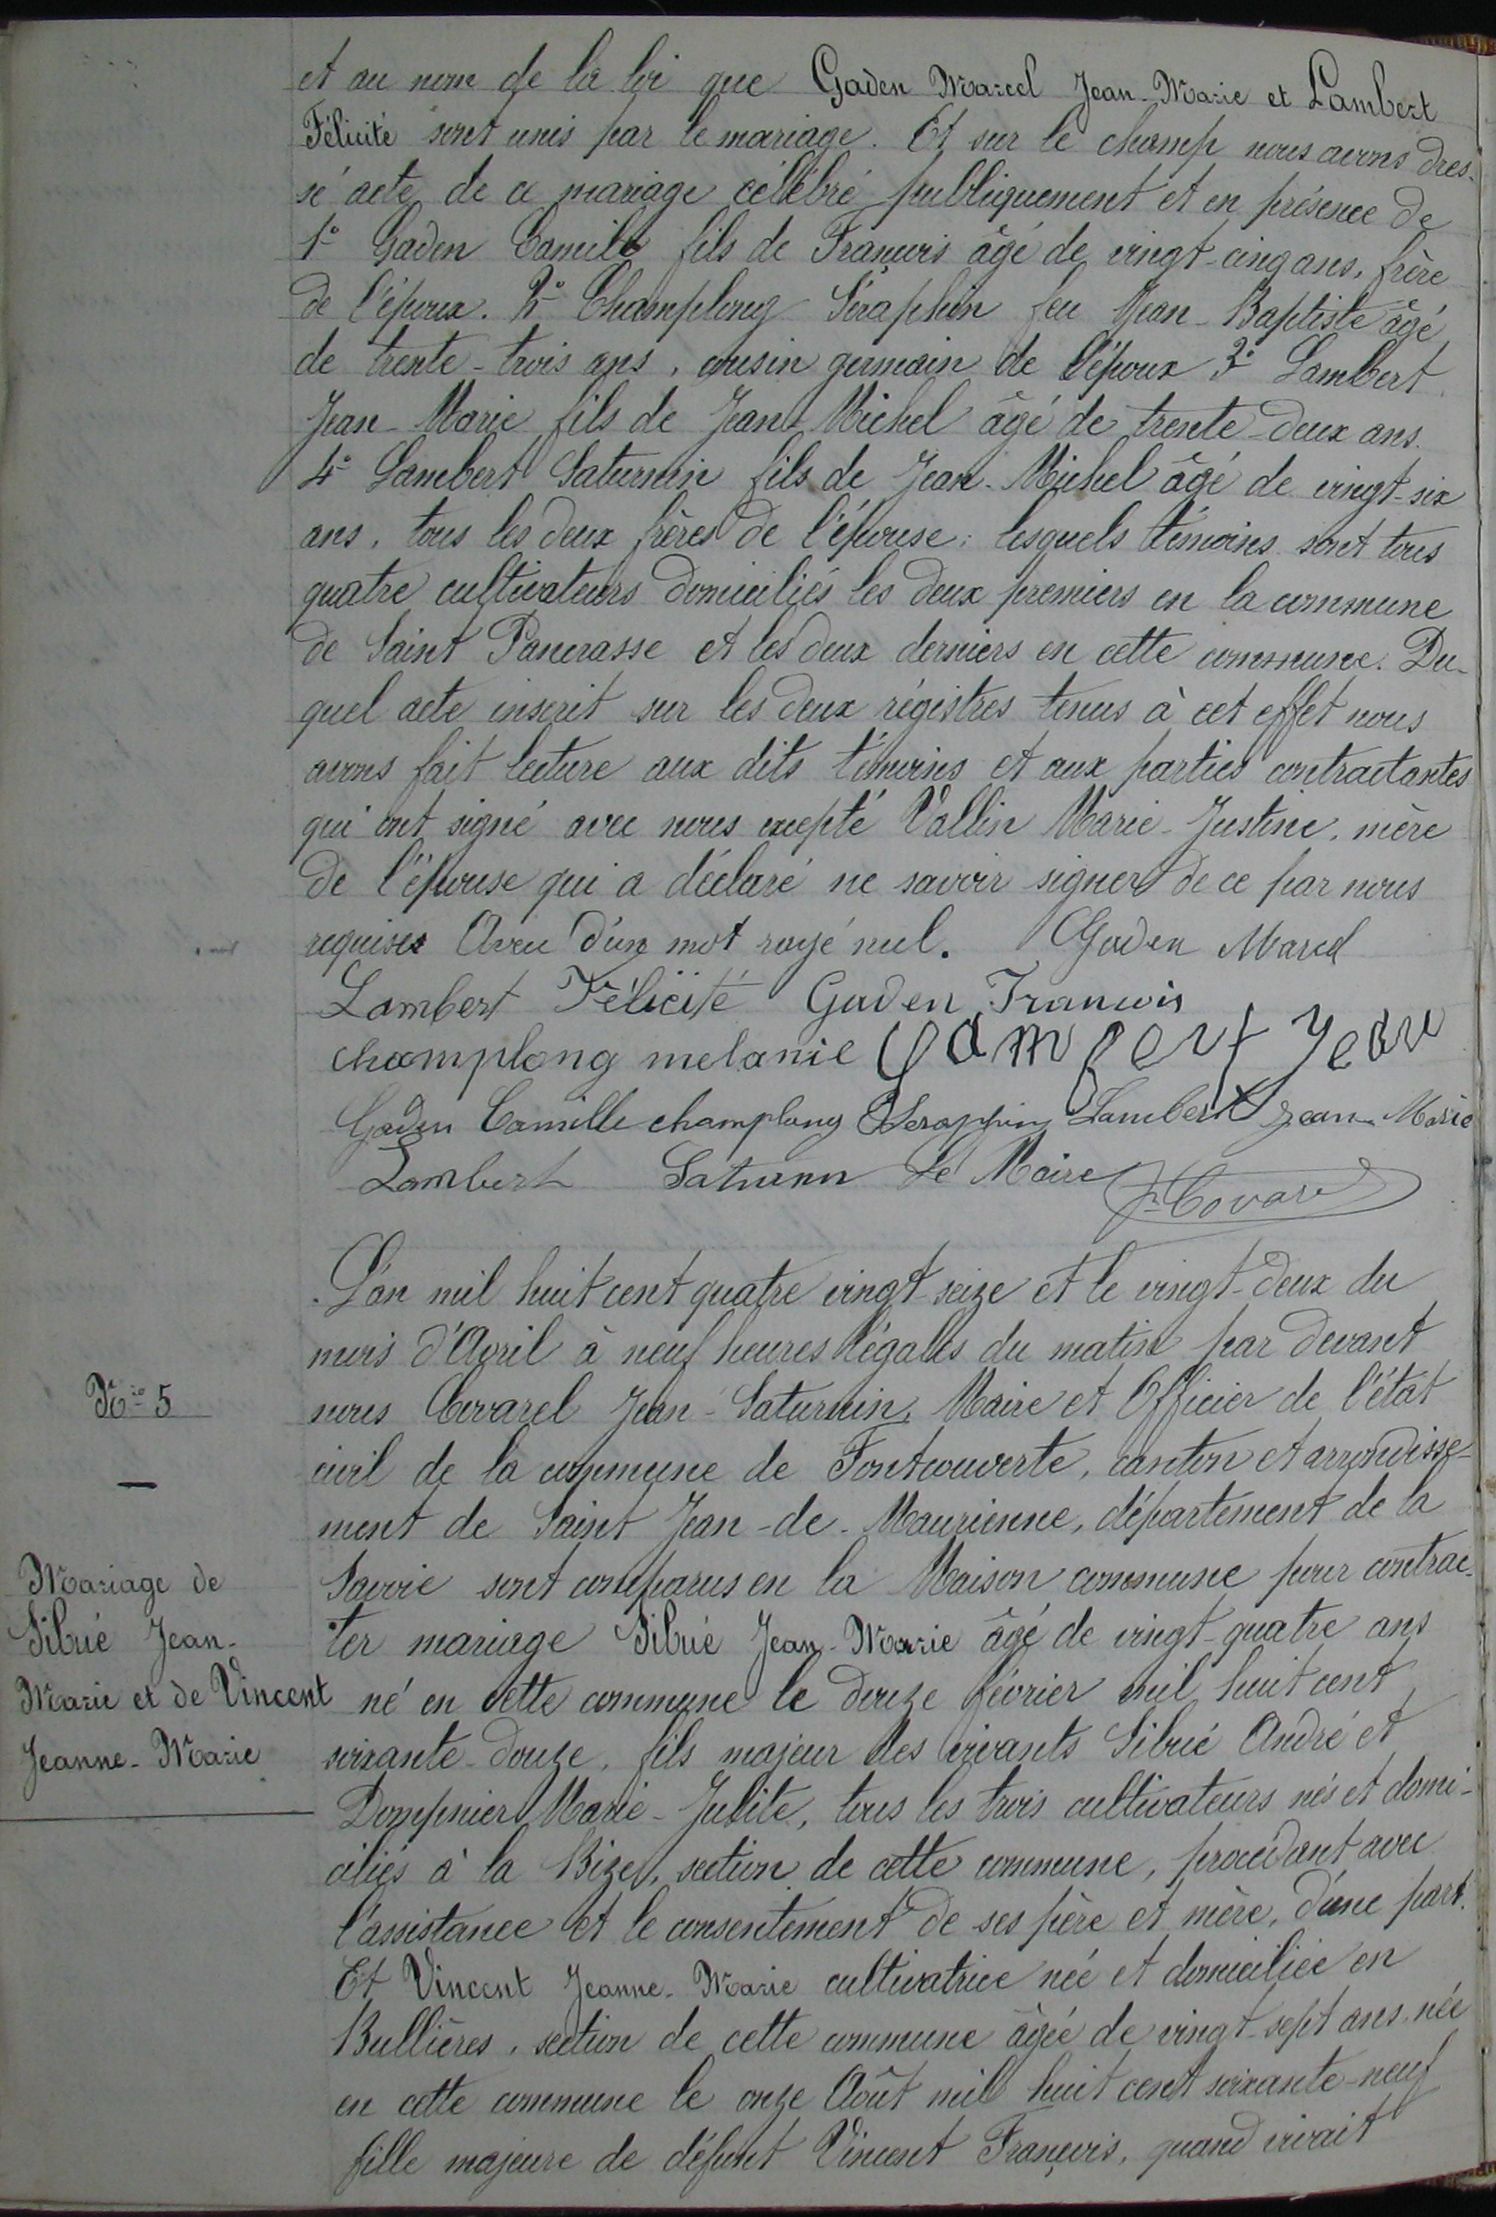 et au nom de la loi que Gaden Marcel Jean-Marie et Lambert
Félicité sont unis par le mariage. Et sur le champ nous avons dres-
sé acte de ce mariage célébré publiquement et en présence de
1° Gaden Camille fils de François âgé de vingt-cinq ans, frère
de l'époux. 2° Champlong Séraphin feu Jean-Baptiste âgé
de trente-trois ans, cousin germain de l'époux 3° Lambert
Jean-Marie fils de Jean-Michel âgé de trente-deux ans.
4° Lambert Saturnin fils de Jean-Michel âgé de vingt-six
ans, tous les deux frères de l'épouse; lesquels témoins sont tous
quatre cultivateurs domiciliés les deux premiers en la commune
de Saint Pancrasse et les deux derniers en cette commune. Du-
quel acte inscrit sur les deux régistres tenus à cet effet nous
avons fait lecture aux dits témoins et aux parties contractantes
qui ont signé avec nous excepté Vallin Marie-Justine, mère
de l'épouse qui a déclaré ne savoir signer de ce par nous
requises Aveu d'un mot rayé nul. Gaden Marcel
Lambert Félicité Gaden François
champlong melanie Lambert Jean
Gaden Camille champlong Seraphin Lambert Jean-Marie
Lambert Saturnin Le Maire
J. Covarel
L'an mil huit cent quatre vingt-seize et le vingt-deux du
mois d'Avril à neuf heures légales du matin par devant
N° 5
nous Covarel Jean-Saturnin, Maire et Officier de l'état
civil de la commune de Fontcouverte, canton et arrondisse-
ment de Saint Jean-de-Maurienne, département de la
Mariage de
Sibué Jean-
Marie et de Vincent
Jeanne-Marie
Savoie sont comparus en la Maison commune pour contrac-
ter mariage Sibué Jean-Marie âgé de vingt-quatre ans
né en cette commune le douze février mil huit cent
soixante-douze, fils majeur des vivants Sibué André et
Dompnier Marie-Julite, tous les trois cultivateurs nés et domi-
ciliés à la Bize, section de cette commune, procédant avec
l'assistance et le consentement de ses père et mère, d'une part.
Et Vincent Jeanne-Marie cultivatrice née et domiciliée en
Bullières, section de cette commune âgée de vingt-sept ans, née
en cette commune le onze Août mil huit cent soixante-neuf
fille majeure de défunt Vincent François, quand vivait